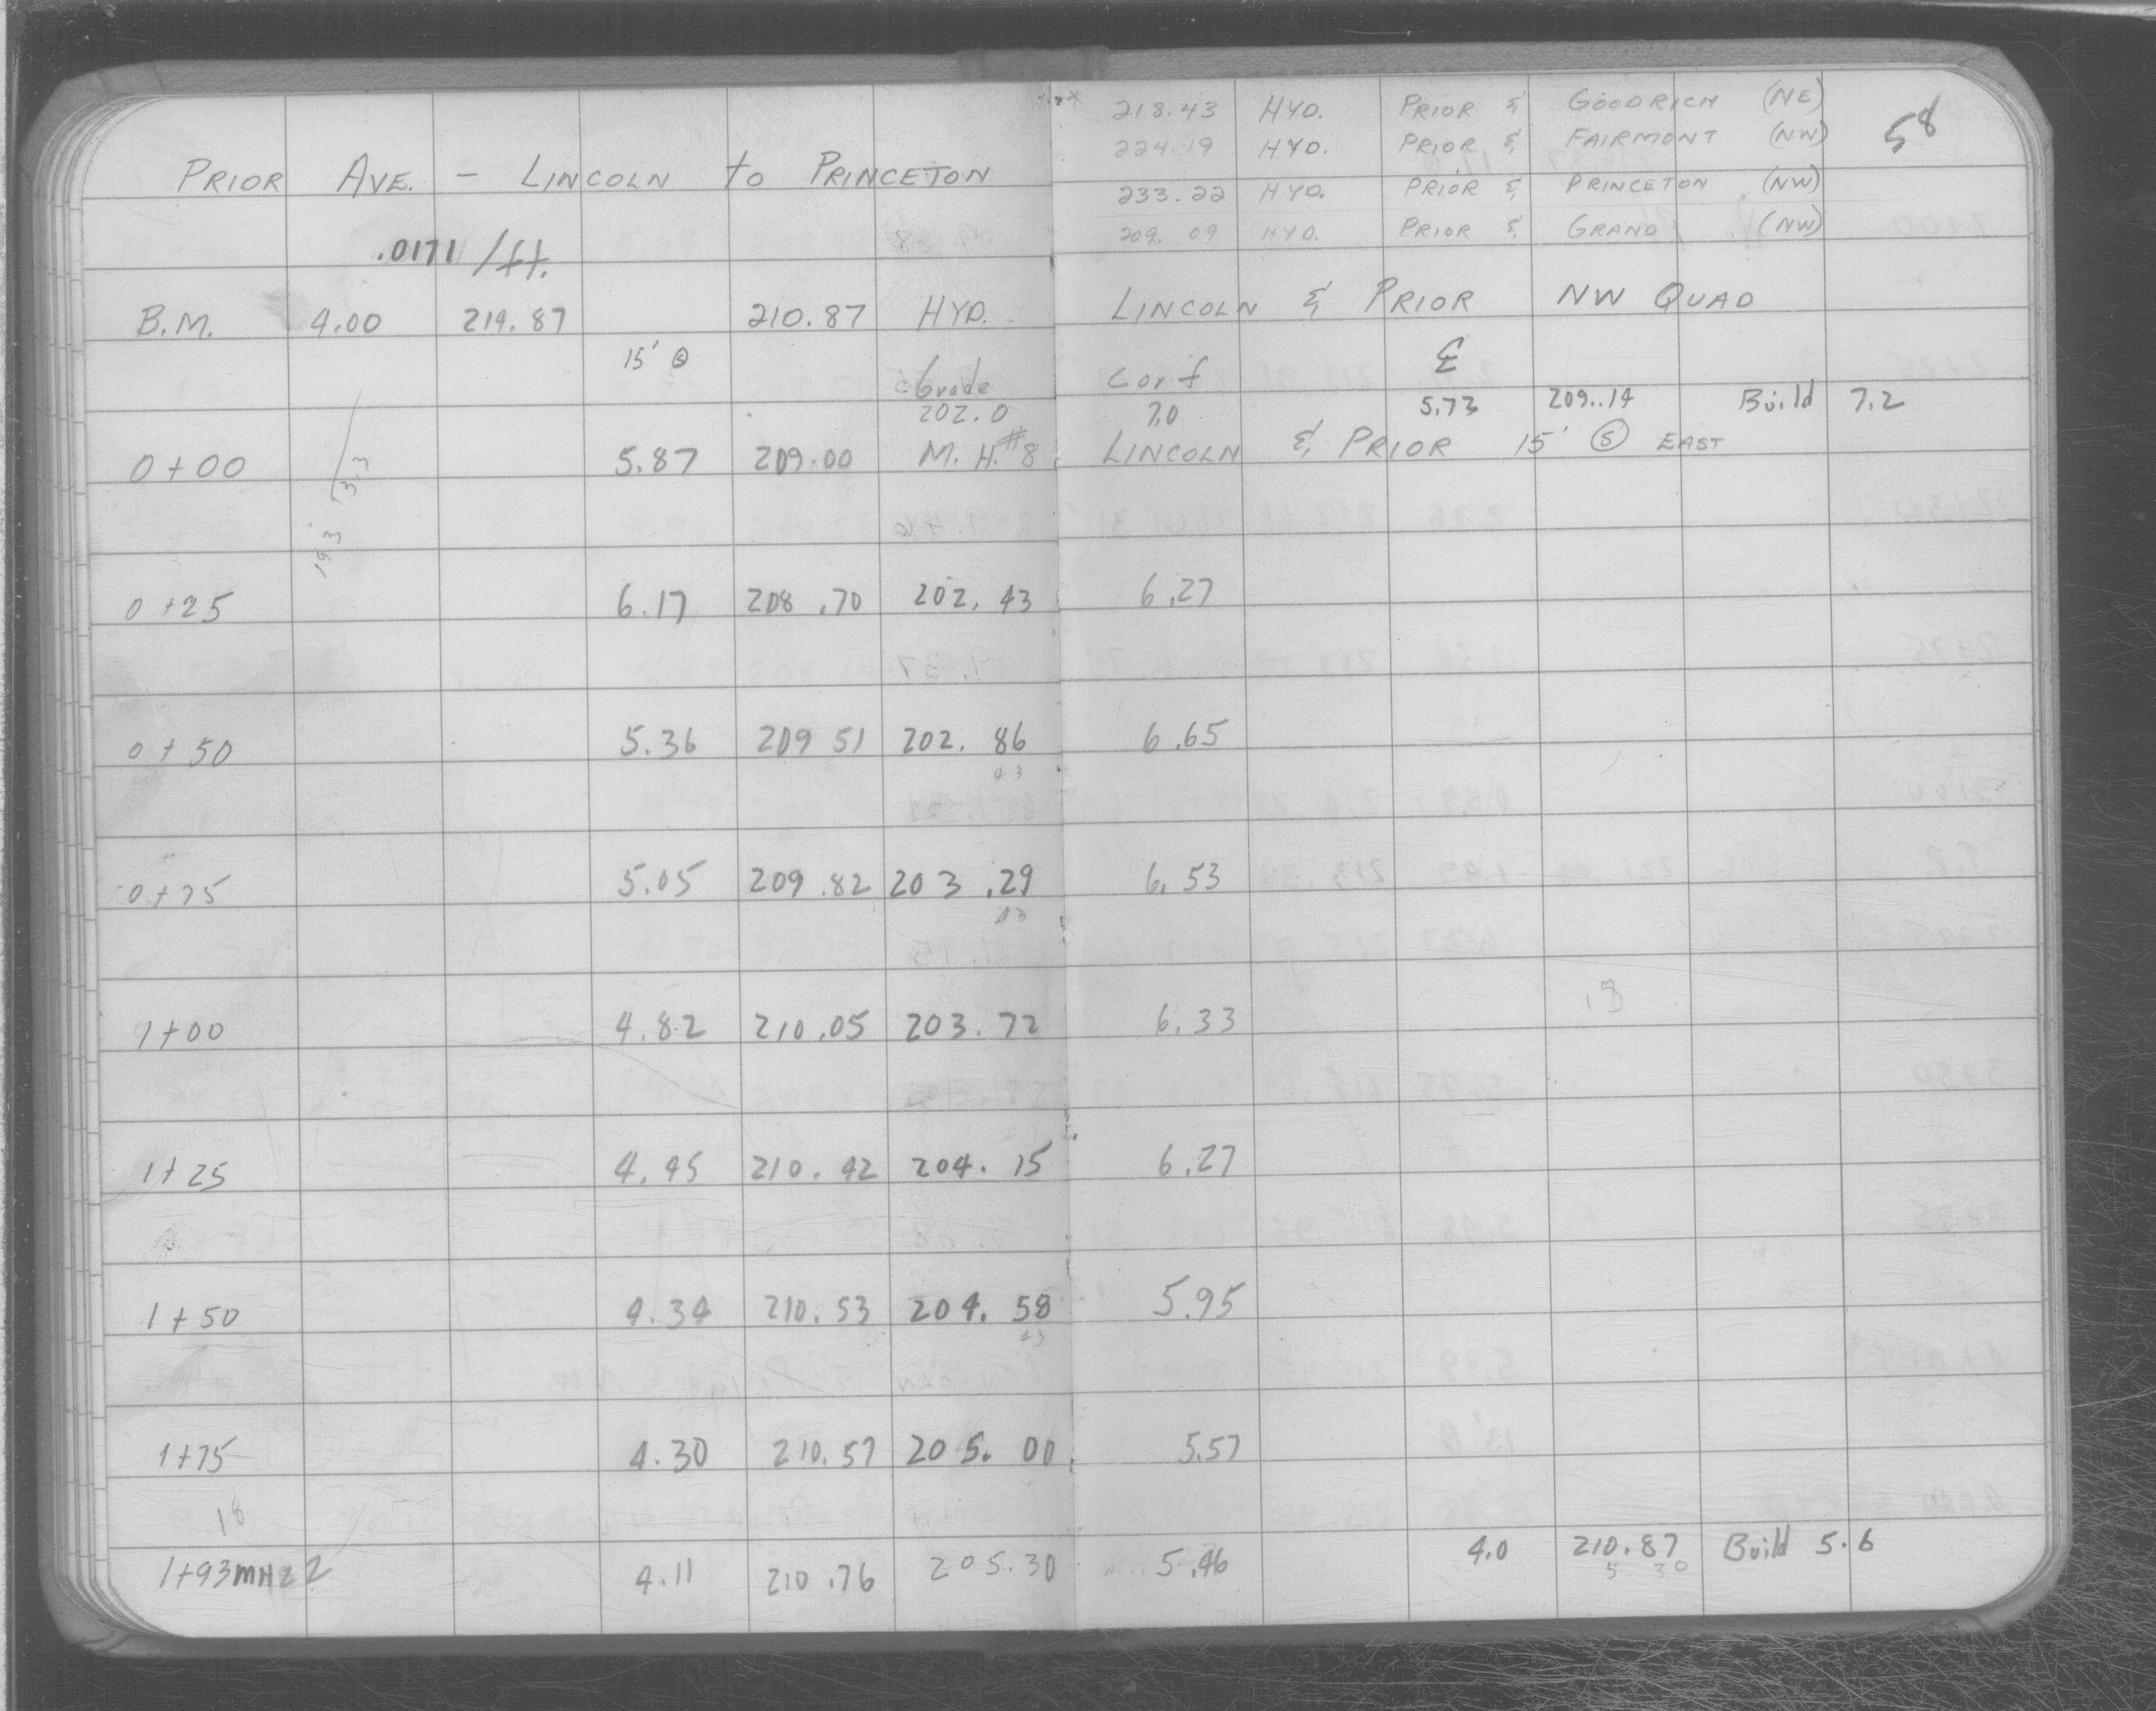 218.43 HYD. PRIOR & GOODRICH (NE) 58
224.19 HYD. PRIOR & FAIRMONT (NW)
PRIOR AVE. - LINCOLN to PRINCETON
233.22 HYD. PRIOR & PRINCETON (NW)
209.09 HYD. PRIOR & GRAND (NW)
.0171 /ft.
B.M. 4.00 214.87 210.87 HYD. LINCOLN & PRIOR NW QUAD
15' Ⓢ Grade C or f
202.0 7.0 5.73 209.14 Build 7.2
0+00 5.87 209.00 M.H.#8 LINCOLN & PRIOR 15' Ⓢ EAST
193 3.3
0+25 6.17 208.70 202.43 6.27
0+50 5.36 209 51 202.86 6.65
43
0+75 5.05 209.82 203.29 6.53
43
1+00 4.82 210.05 203.72 6.33
1+25 4.45 210.42 204.15 6.27
1+50 4.34 210.53 204.58 5.95
43
1+75 4.30 210.57 205.00 5.57
18
1+93 MH 22 4.11 210.76 205.30 5.46 4.0 210.87 Build 5.6
5 30